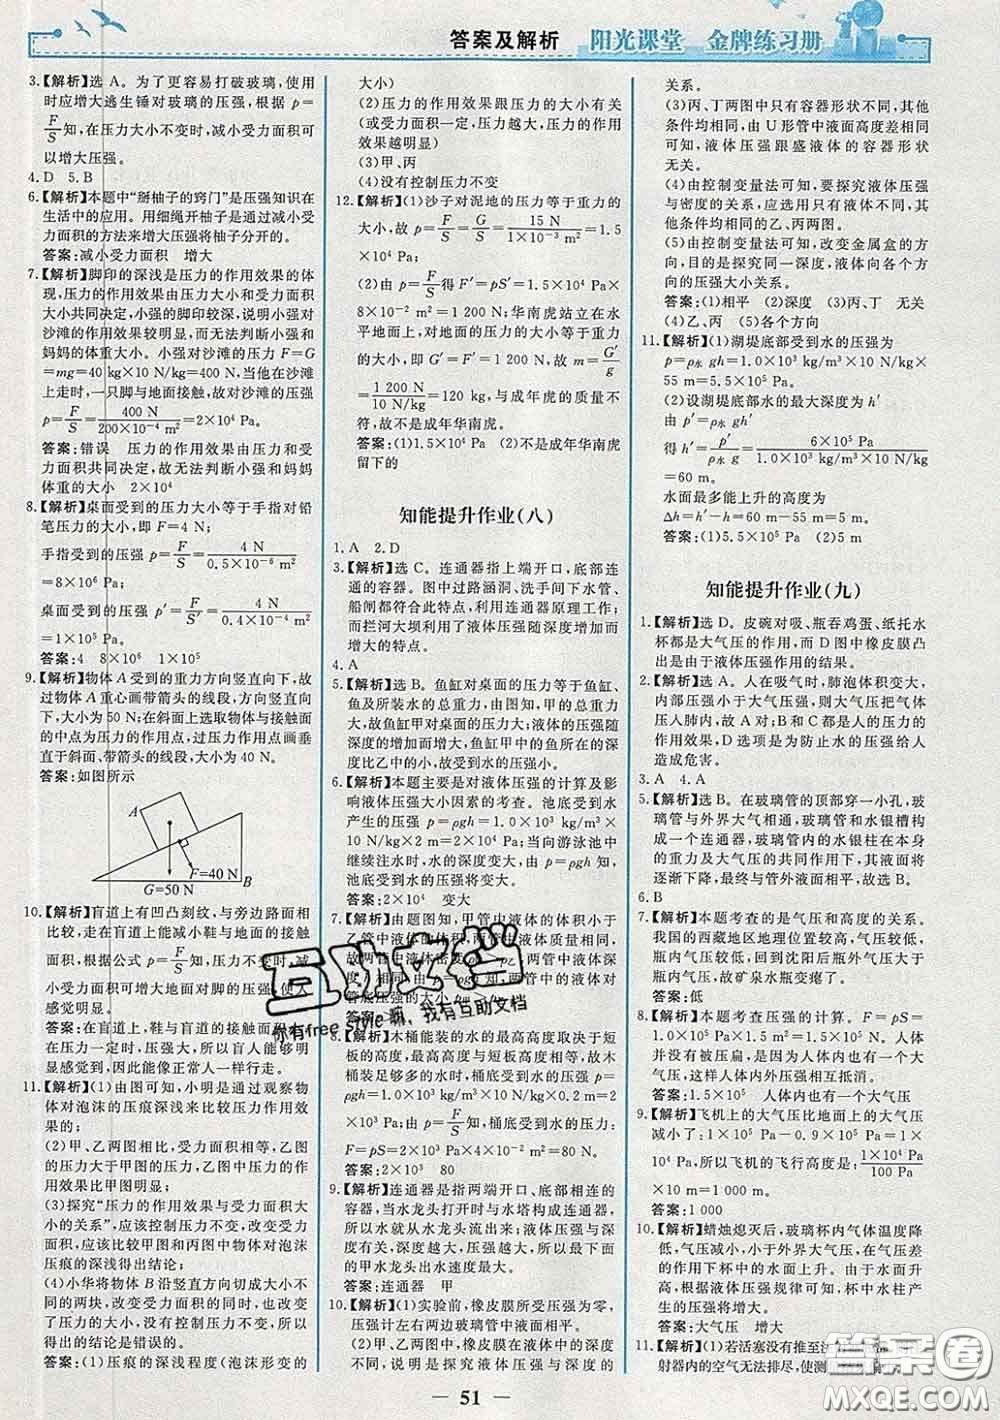 答案及解析 阳光课堂 金牌练习册
3.【解析】选 A。为了更容易打破玻璃,使用
时应增大逃生锤对玻璃的压强,根据 p=
F/S知,在压力大小不变时,减小受力面积可
以增大压强。
4.D 5.B
6.【解析】本题中“掰柚子的窍门”是压强知识在
生活中的应用。用细绳开柚子是通过减小受
力面积的方法来增大压强将柚子分开的。
答案:减小受力面积 增大
7.【解析】脚印的深浅是压力的作用效果的体
现,压力的作用效果由压力大小和受力面积
大小共同决定,小强的脚印较深,说明小强对
沙滩的作用效果较明显,而无法判断小强和
妈妈的体重大小。小强对沙滩的压力 F=G
=mg=40 kg×10 N/kg=400 N,小强在沙滩
上走时,一只脚与地面接触,故对沙滩的压强
p=F/S=400 N/200×10⁻⁴ m²=2×10⁴ Pa。
答案:错误 压力的作用效果由压力和受
力面积共同决定,故无法判断小强和妈妈
体重的大小 2×10⁴
8.【解析】桌面受到的压力大小等于手指对铅
笔压力的大小,即 F=4 N;
手指受到的压强 p=F/S=4 N/0.5×10⁻⁶ m²
=8×10⁶ Pa;
桌面受到的压强 p′=F/S′=4 N/0.4×10⁻⁴ m²
=1×10⁵ Pa。
答案:4 8×10⁶ 1×10⁵
9.【解析】物体 A 受到的重力方向竖直向下,故
过物体 A 重心画带箭头的线段,方向竖直向
下,大小为 50 N;在斜面上选取物体与接触面
的中点为压力的作用点,过压力作用点作垂
直于斜面、带箭头的线段,大小为 40 N。
答案:如图所示
A
F=40 N
G=50 N
B
10.【解析】盲道上有凹凸刻纹,与旁边路面相
比较,走在盲道上能减小鞋与地面的接触
面积,根据公式 p=F/S知,压力不变时,减
小受力面积可增大地面对脚的压强,使人
感觉明显。
答案:在盲道上,鞋与盲道的接触面积小,
在压力一定时,压强大,所以盲人能够明显
感觉出来,因此能像正常人一样行走。
11.【解析】(1)由图可知,小明是通过观察物
体对泡沫的压痕深浅来比较压力作用效
果的;
(2)甲、乙两图相比,受力面积相等,乙图的
压力大于甲图的压力,故乙图中压力的作
用效果比甲图明显;
(3)探究“压力的作用效果与受力面积大
小的关系”,应控制压力不变,改变受力面
积大小,所以比较甲图和丙图中物体对泡沫
压痕的深浅得出结论;
(4)小华将物体 B 沿竖直方向切成大小不
同的两块,改变了受力面积的同时改变了压力
的大小,没有控制压力不变,所以小华所
得出的结论是错误的。
答案:(1)压痕的深浅程度(泡沫形变的
大小)
(2)压力的作用效果跟压力的大小有关
(或受力面积一定,压力越大,压力的作用
效果越明显)
(3)甲、丙
(4)没有控制压力不变
12.【解析】(1)沙子对泥地的压力等于重力的
大小,故 p=F/S=G/S=15 N/1×10⁻³ m²=1.5
×10⁴ Pa;
(2)由 p=F/S得 F′=pS′=1.5×10⁴ Pa×
8×10⁻² m²=1 200 N;华南虎站立在水
平地面上,对地面的压力的大小等于重力
的大小,即 G′=F′=1 200 N,故 m=G′/g
=1 200 N/10 N/kg=120 kg,与成年虎的质量不
符,故不是成年华南虎。
答案:(1)1.5×10⁴ Pa (2)不是成年华南虎
留下的
知能提升作业(八)
1.A 2.D
3.【解析】选 C。连通器指上端开口,底部连
通的容器。图中过路涵洞、洗手间下水管、
船闸都符合此特点,利用连通器原理工作;
而拦河大坝利用了液体压强随深度增加而
增大的特点。
4.A
5.【解析】选 B。鱼缸对桌面的压力等于鱼缸、
鱼及所装水的总重力,由图知,甲的总重力
大,故鱼缸甲对桌面的压力大;液体的压强随
深度的增大而增大,鱼缸甲中的鱼所在的深度
比乙中的小,故受到的压强小。
6.【解析】本题主要是对液体压强的计算及影
响液体压强大小因素的考查。池底受到水
产生的压强 p=ρgh=1.0×10³ kg/m³×
10 N/kg×2 m=2×10⁴ Pa;当向游泳池中
继续注水时,水的深度变大,由 p=ρgh 知,
池底受到的压强将变大。
答案:2×10⁴ 变大
7.【解析】由题图知,甲管中液体的体积小于
乙管中液体的体积,
8.【解析】木桶能装的水的最高高度取决于短
板的高度,最高高度与短板等高,故木
桶装满水时水的深度为短板的高度,p=
ρgh=1.0×10³ kg/m³×10 N/kg×0.2 m=2
×10³ Pa;由 p=F/S知,桶底受到水的压力:
F=pS=2×10³ Pa×4×10⁻² m²=80 N。
答案:2×10³ 80
9.【解析】连通器是指两端开口、底部连通的容
器,当水龙头打开时与水塔构成连通器,
所以水就从水龙头流出来;液体压强与液
体的深度有关,深度越大,压强越大,所以图中
的甲水龙头出水速度最大。
答案:连通器 甲
10.【解析】(1)实验前,橡皮膜所受压强为零,
压强计左右两边玻璃管中液面相平。
(2)甲、乙两图中,橡皮膜在液体中的深度
不同,所以说明液体的压强与深度的
关系。
(3)丙、丁两图中只有容器形状不同,其他
条件均相同,由 U 形管中液面高度差相同
可知,液体压强跟盛液体的容器形状
无关。
(4)由控制变量法可知,要探究液体压强
与密度的关系,应选用只有液体的种类不
同,而其他条件均相同的乙、丙两图。
(5)由控制变量法可知,改变金属盒的方
向,目的是探究同一深度,液体向各个方
向的压强大小关系。
答案:(1)相平 (2)深度 (3)丙、丁 无关
(4)乙、丙 (5)各个方向
11.【解析】(1)湖堤底部受到水的压强为
p=ρ水 gh=1.0×10³ kg/m³×10 N/kg×
55 m=5.5×10⁵ Pa。
(2)设湖堤底部水的最大深度为 h′
由 p′=ρ水 gh′
得 h′=p′/ρ水 g=6×10⁵ Pa/1.0×10³ kg/m³×10 N/kg
=60 m。
水面最多能上升的高度为
Δh=h′-h=60 m-55 m=5 m。
答案:(1)5.5×10⁵ Pa (2)5 m
知能提升作业(九)
1.【解析】选 D。皮碗对吸、瓶吞鸡蛋、纸托水
杯都是大气压的作用,而 D 图中橡皮膜凸
出是由于液体压强作用的结果。
2.【解析】选 A。人在吸气时,肺泡体积变大,
内部压强小于大气压强,则大气压把气体
压入肺内,故 A 对;B 和 C 都是人的压力的
作用效果,D 选项是为防止水的压强给人
造成危害。
3.A 4.A
5.【解析】选 B。在玻璃管的顶部穿一小孔,玻
璃管与外界大气相通,玻璃管和水银槽构
成一个连通器,玻璃管内的水银柱在本身
的重力及大气压的共同作用下,向下降落,
逐渐下降,最终与管外液面相平。故选 B。
6.B
7.【解析】本题考查的是气压和高度的关系。
我国的西藏地区地理位置较高,大气压
较低,回到沈阳后瓶外大气压大于
瓶内气压,故矿泉水瓶变瘪了。
答案:低
8.【解析】本题考查压强的计算。F=pS=
1.0×10⁵ Pa×1.5 m²=1.5×10⁵ N;人体
并没有被压扁,是因为人体内也有大气压,
内外压强相互抵消。
答案:1.5×10⁵ 人体内也有大气压
9.【解析】飞机上的大气压比地面上的大气压
减小了:
所以飞机的飞行高度是
×10 m=1 000 m。
答案:1 000 m
10.【解析】蜡烛熄灭后,玻璃杯内气体温度降
低,
杯中的水面上升。由于水面升
高,根据液体压强规律可知,杯中水柱产
生的压强将增大。
答案:大气压 增大
11.【解析】(1)若活塞没有推至
射器内的空气无法排尽,使测
互助文档
你有free style嘛,我有互助文档
答案圈
MXQE.COM
— 51 —